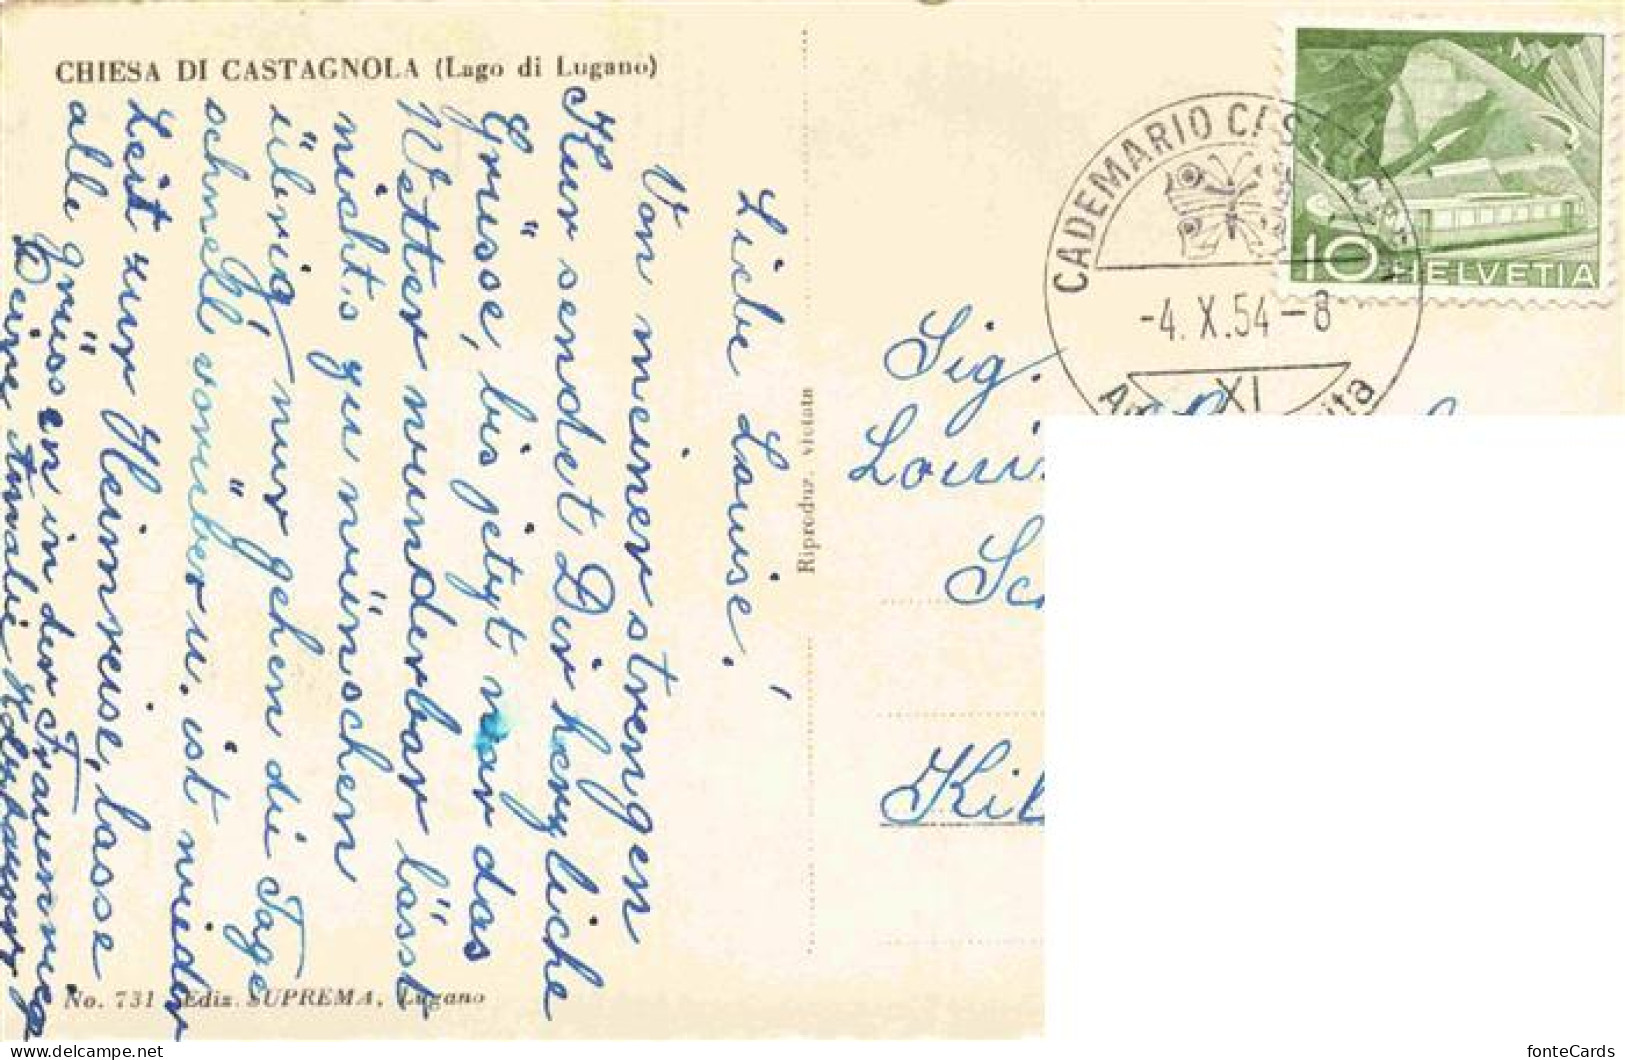 CHIESA DI CASTAGNOLA (Lago di Lugano)
Liebe Louise!
Von meiner strengen
Kur sendet Dir herzliche
Grüsse, bis jetzt war das
Wetter wunderbar lässt
nichts zu wünschen
übrig, nur gehen die Tage
schnell vorüber u. ist wieder
Zeit zur Heimreise, lasse
alle grüssen in der
Deine Amalie
No. 731 Ediz. SUPREMA, Lugano
Riproduz. vietata
CADEMARIO
-4. X. 54 - 8
XI
10 HELVETIA
Sig.
Loui
Sc
Kil
fonteCards
delcampe.net